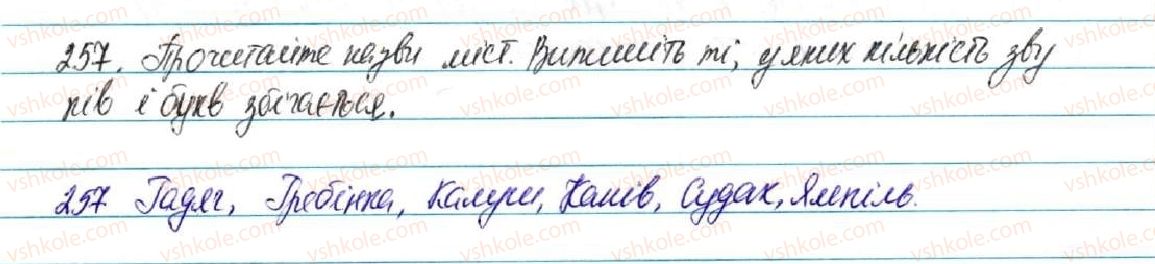 257. Прочитайте назви міст. Випишіть ті, у яких кількість зву
ків і букв збігається.
257 Гадяч, Гребінка, Калуш, Канів, Судак, Ямпіль.